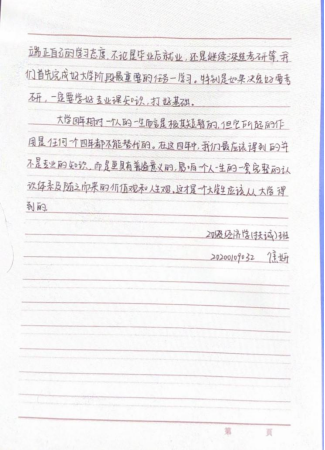 端正自己的学习态度，不论是毕业后就业，还是继续深造考研等，我
们首先完成好大学阶段最重要的任务—学习。特别是如果决定好要考
研，一定要学好专业课知识，打好基础。
大学四年相对一个人的一生而言是极其短暂的，但它所起的作
用是任何一个四年都不能替代的。在这四年中，我们最应该得到的并
不是专业的知识，而是更具有普遍意义的，影响一个人一生的一套完整的认
识体系及随之而来的价值观和人生观，这才是个大学生应该从大学得
到的。
20级经济学(扶诚)班
20200109032
第 页